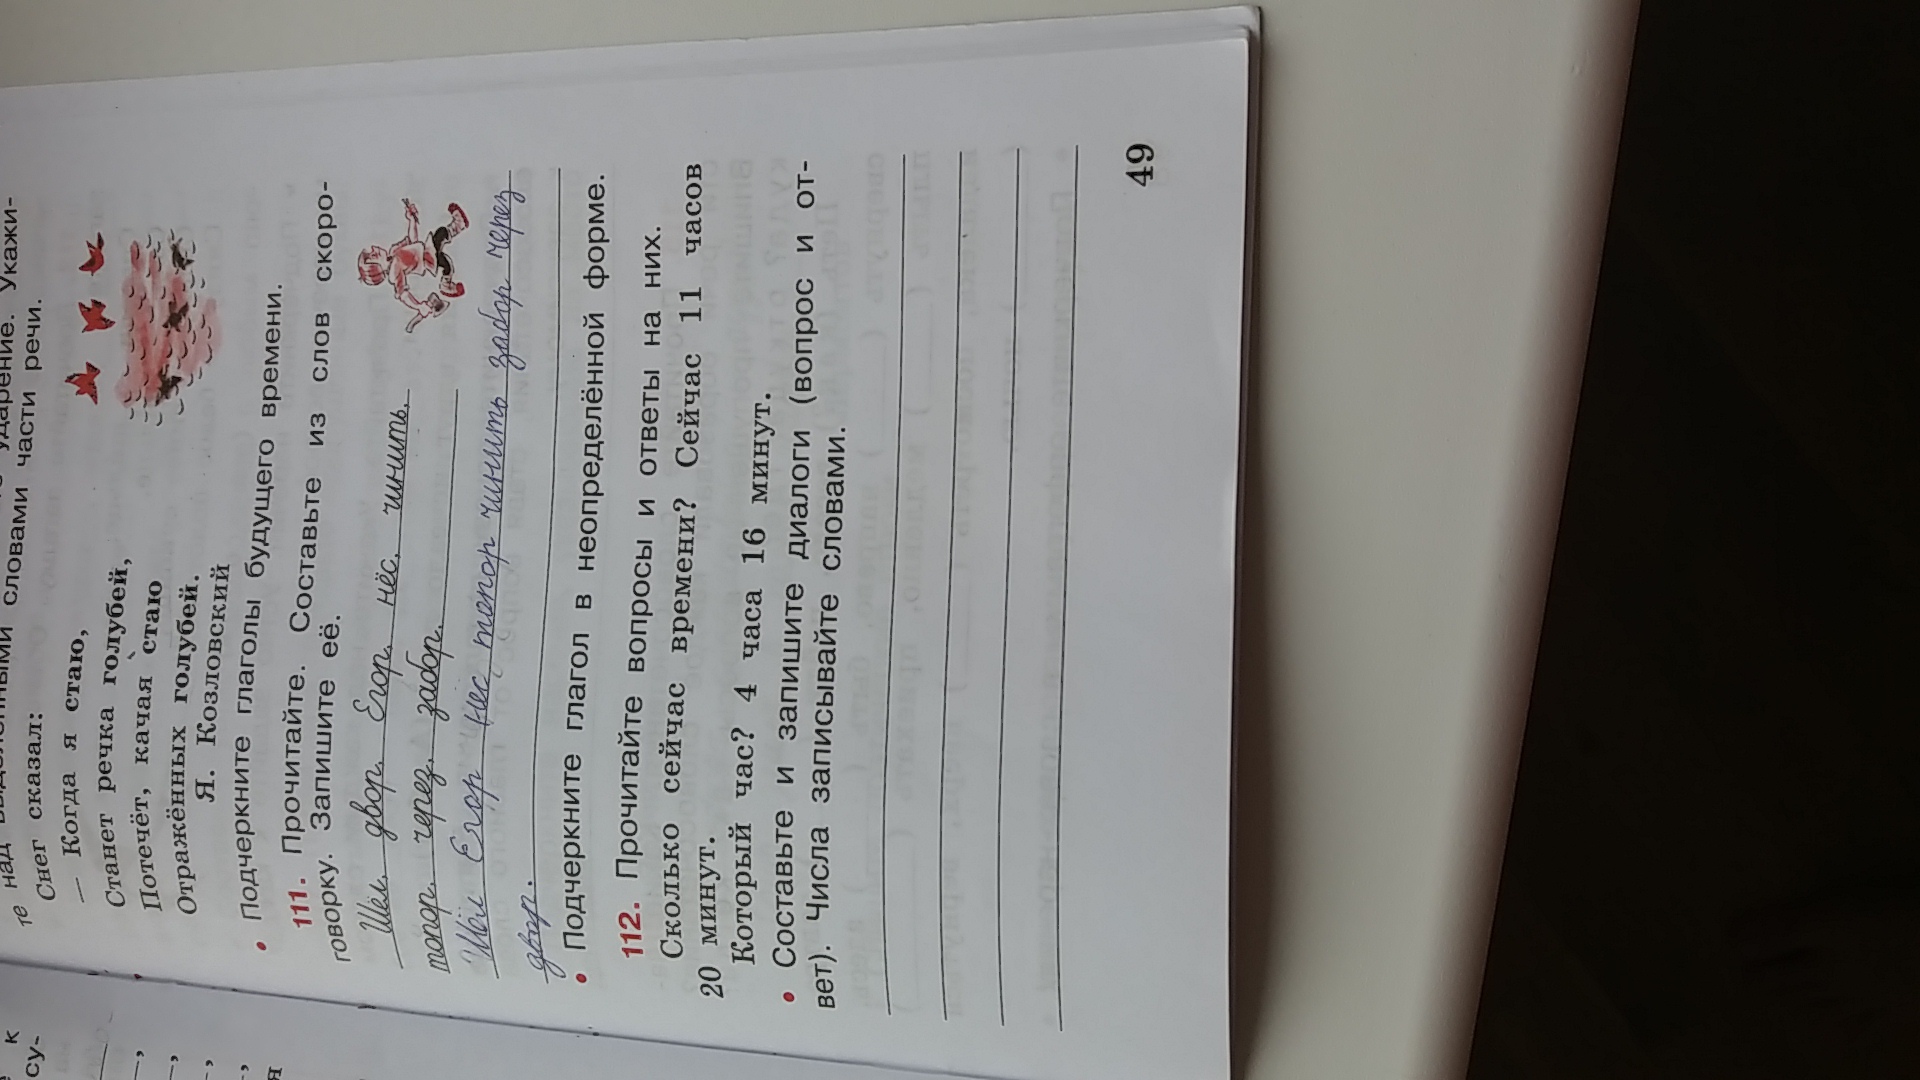 над выделенными словами ударение. Укажи-
те над словами части речи.
Снег сказал:
— Когда я стаю,
Станет речка голубей,
Потечёт, качая стаю
Отражённых голубей.
Я. Козловский
• Подчеркните глаголы будущего времени.
111. Прочитайте. Составьте из слов скоро-
говорку. Запишите её.
Шёл, двор, Егор, нёс, чинить,
топор, через, забор.
Шёл Егор нёс топор чинить забор через
двор.
• Подчеркните глагол в неопределённой форме.
112. Прочитайте вопросы и ответы на них.
Сколько сейчас времени? Сейчас 11 часов
20 минут.
Который час? 4 часа 16 минут.
• Составьте и запишите диалоги (вопрос и от-
вет). Числа записывайте словами.
49
к
су-
я